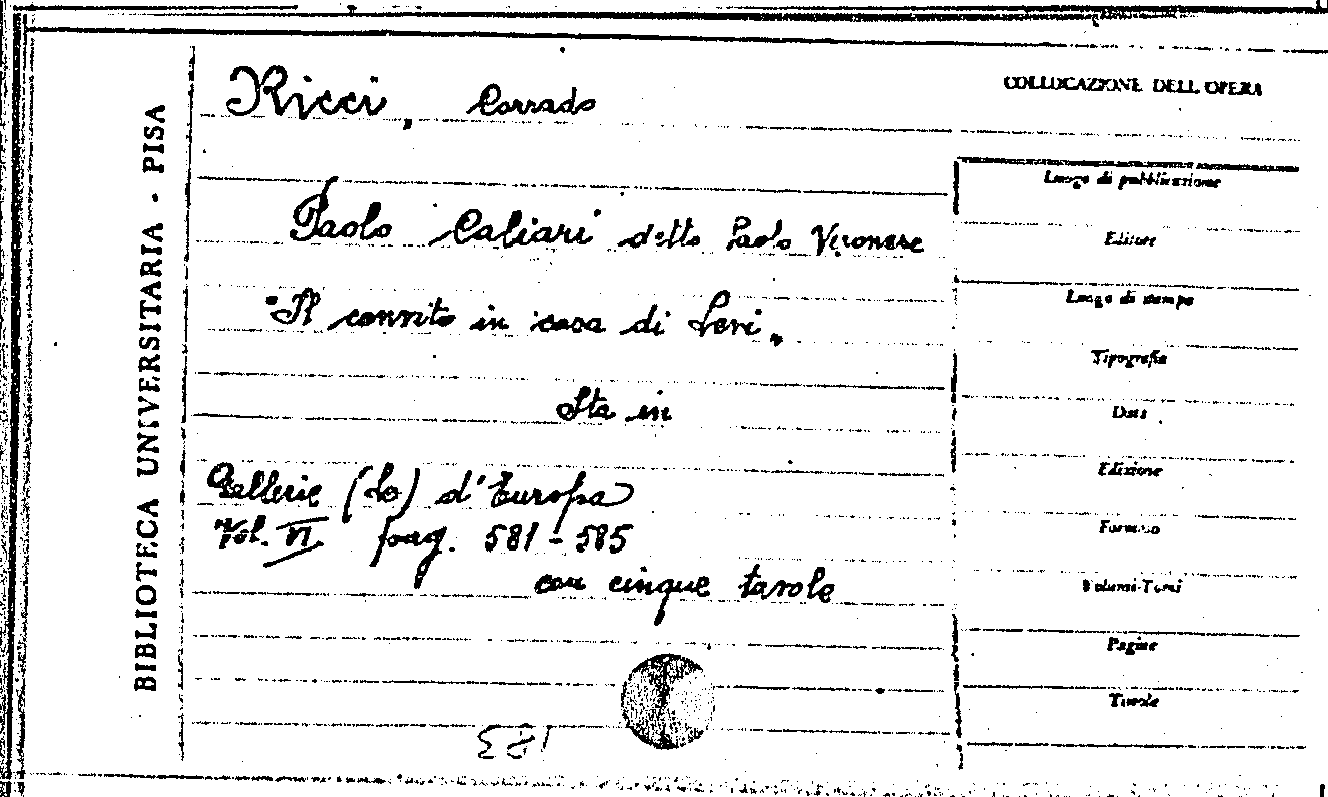 BIBLIOTECA UNIVERSITARIA - PISA
Ricci, Corrado
Paolo Caliari detto Paolo Veronese
"Il convito in casa di Levi„
Sta in
Gallerie (Le) d'Europa
Vol. VI pag. 581-585
con cinque tavole
COLLOCAZIONE DELL'OPERA
Luogo di pubblicazione
Editore
Luogo di stampa
Tipografia
Data
Edizione
Formato
Volumi-Tomi
Pagine
Tavole